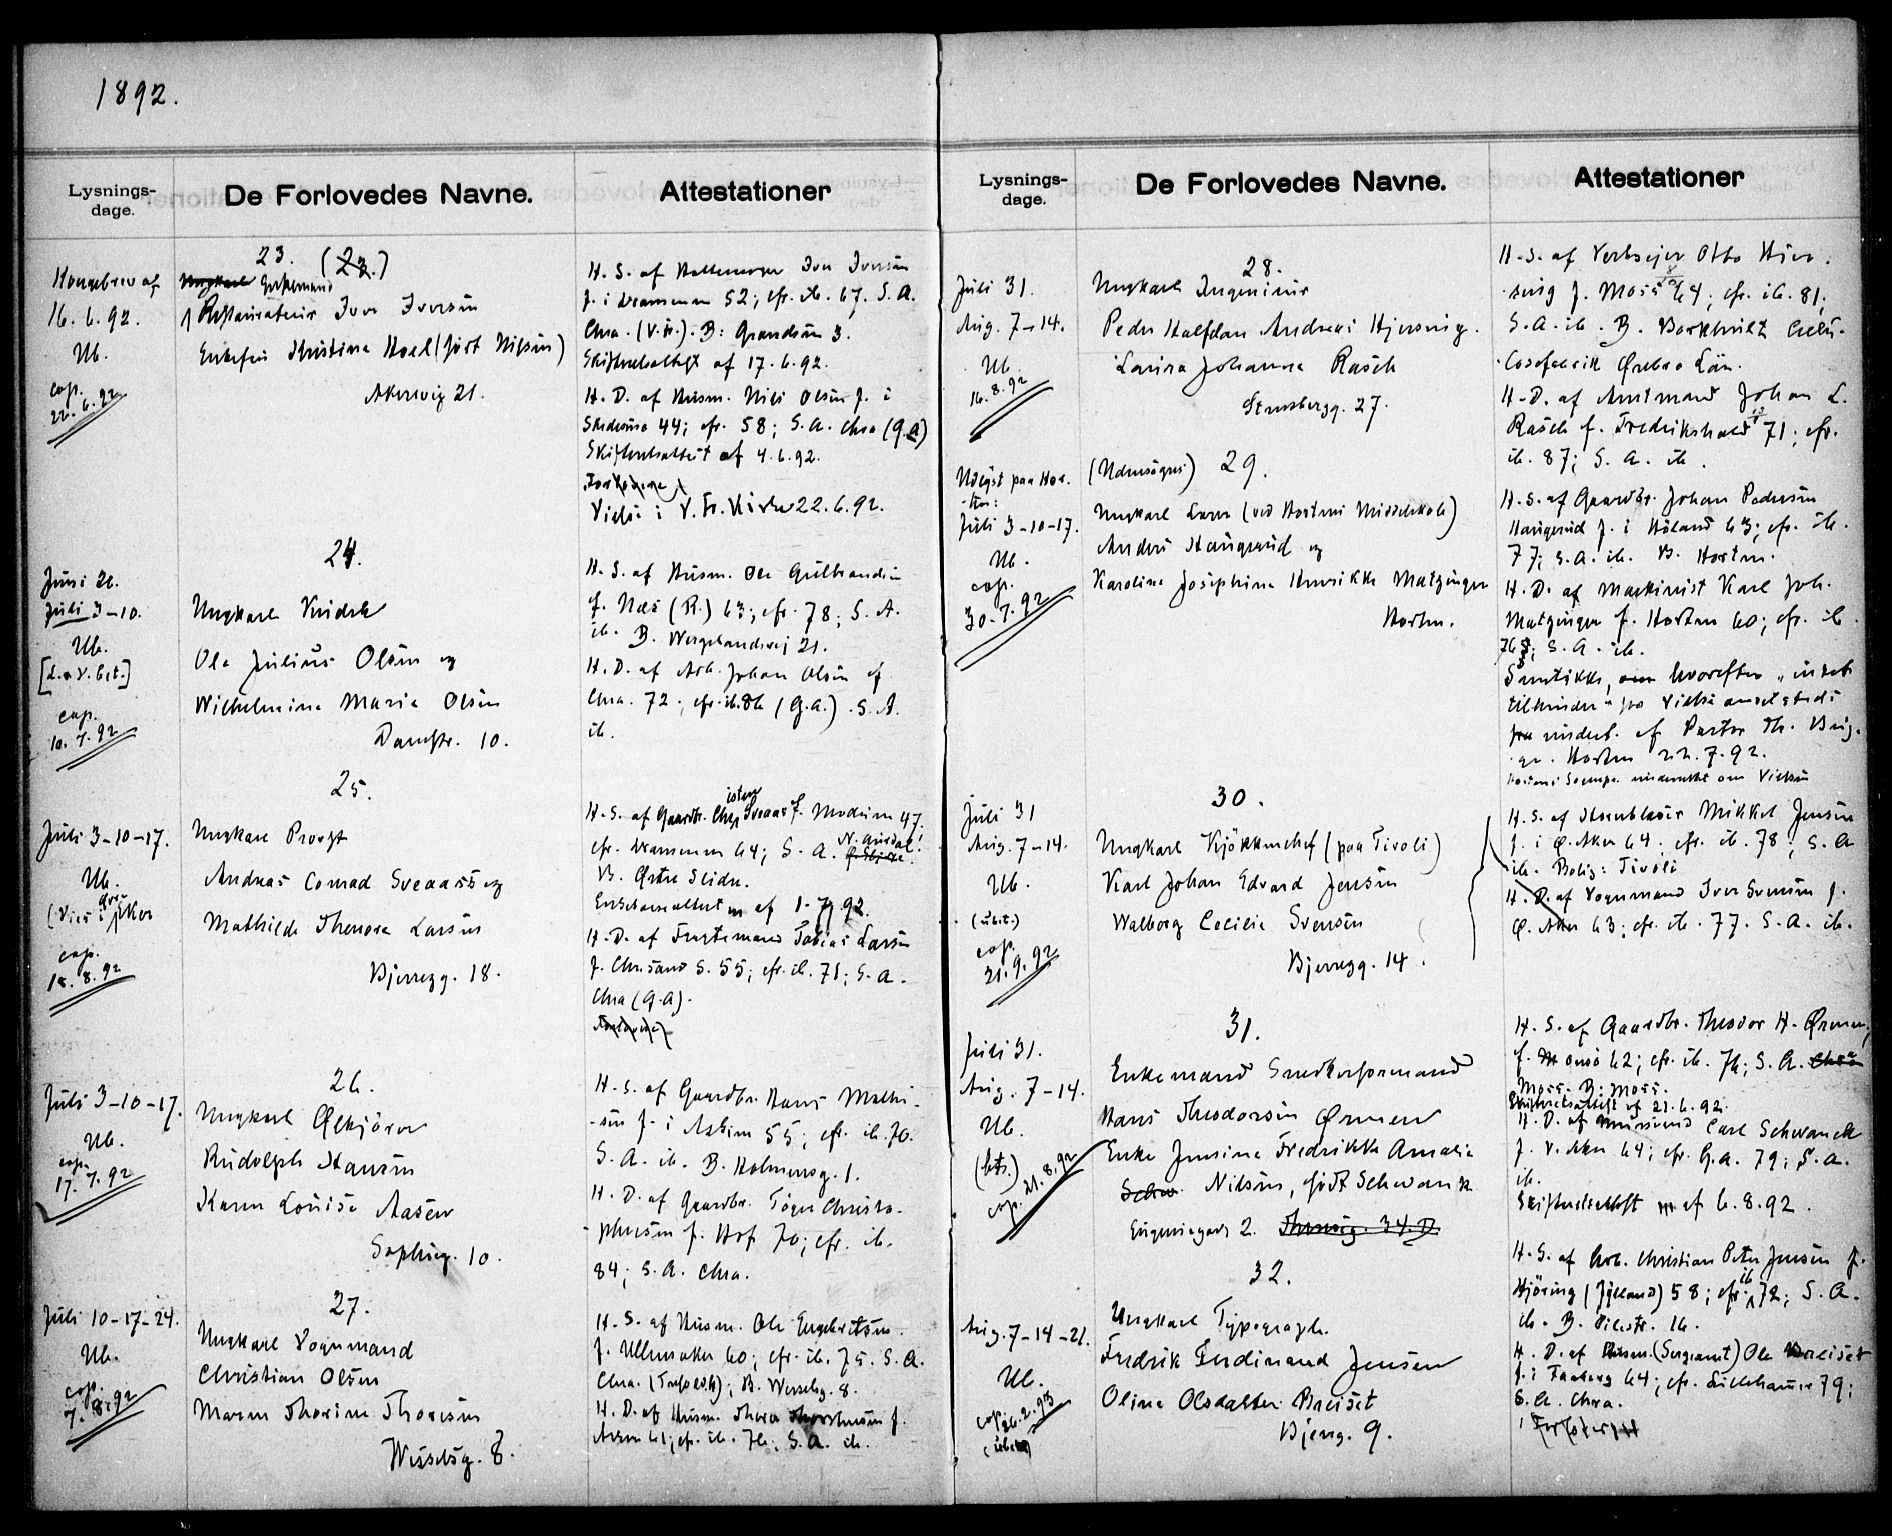 1892.
Lysnings-
dage.
De Forlovedes Navne.
Attestationer
Kongebrev af
16.6.92.
Ub.
cop.
22.6.92
23. (23.)
Ungkarl Enkemand
Restaurateur Iver Iversen
Enkefru Christine Hoel (født Nilsen)
Akersvig 21.
H. S. af Iver Iversen
f. i Drammen 52; cfr. ib. 67. S. A.
Chra. (V. Fr.). B: Grændsen 3.
Skifteattest af 17.6.92.
H. D. af Husm. Nils Olsen f. i
44; cfr. 58; S. A. Chra (G. A)
Skifteattest af 4.6.92.
Vielse i V. Fr. Kirke 22.6.92.
Juni 26.
Juli 3-10.
Ub.
cop.
10.7.92
24.
Ungkarl Kudsk
Ole Julius Olsen og
Wilhelmine Marie Olsen
Damstr. 10.
H. S. af Husm. Ole Gulbrandsen
f. Næs (R.) 63; cfr. 78; S. A.
ib. B. Wergelandsvej 21.
H. D. af Arb. Johan Olsen f.
Chra. 72; cfr. ib. 86 (G. A.). S. A.
ib.
Juli 3-10-17.
Ub.
(Vies i Øvre Eker
cop.
18.8.92
25.
Ungkarl Provst
Andreas Conrad Sveaass og
Mathilde Thenora Larsen
Bjerregg. 18.
H. S. af Gaardbr. Christen Sveaas f. Modum 47.
cfr. Drammen 64; S. A. N. Aurdal.
B. Østre Slidre.
af 1.7.92.
H. D. af Tobias Larsen
f. Chrsand S. 55; cfr. ib. 71; S. A.
Chra (G. A).
Juli 3-10-17.
Ub.
cop.
17.7.92
26.
Ungkarl Ølkjører
Rudolph Hansen
Karen Louise Aasen
Sophieg. 10.
H. S. af Gaardbr. Hans Mathi-
sen f. i Askim 55; cfr. ib. 70.
S. A. ib. B. Holmensg. 1.
H. D. af Gaardbr. Tøger Christo-
phersen f. Hof 70; cfr. ib.
84; S. A. Chra.
Juli 10-17-24.
Ub.
cop.
7.8.92
27.
Ungkarl Vognmand
Christian Olsen
Maren Thorine Thoresen
Wesselsg. 8.
H. S. af Husm. Ole Engebretsen.
f. Ullensaker 60; cfr. ib. 75. S. A.
Chra. (Trefoldh); B. Wesselsg. 8.
H. D. af Husm. Thore Thorstensen f.
61; cfr. ib. 76; S. A. ib.
Lysnings-
dage.
De Forlovedes Navne.
Attestationer
Juli 31.
Aug. 7-14.
Ub.
16.8.92
28.
Ungkarl Ingeniør
Peder Halfdan Andreas Hjersing.
Laura Johanna Rasch
Stensbergg. 27.
H. S. af Værkseier Otto Hier-
sing f. Moss 64; cfr. ib. 81;
S. A. ib. B. Cellu-
losefabrik Ørebro Län.
H. D. af Amtmand Johan L.
Rasch f. Fredrikshald 71; cfr.
ib. 87; S. A. ib.
Udlyst paa Hor-
ten:
Juli 3-10-17.
Ub.
cop.
30.7.92
(Udensogns) 29.
Ungkarl Lærer (ved Hortens Middelskole)
Anders Haugerud og
Karoline Josephine Henrikke Matzinger
Horten.
H. S. af Gaardbr. Johan Pedersen
Haugerud f. i Høland 63; cfr. ib.
77; S. A. ib. B. Horten.
H. D. af Maskinist Karl Joh.
Matzinger f. Horten 60; cfr. ib.
76; S. A. ib.
hvorefter "intet
til hinder" for Vielse andetsteds
underb. af Pastor Th.
Horten 22.7.92.
Juli 31
Aug. 7-14.
Ub.
(ubt.)
cop.
21.9.92
30.
Ungkarl Kjøkkenchef (paa Tivoli)
Karl Johan Edvard Jensen
Walborg Cecilie Svensen
Bjerregg. 14.
H. S. af Mikkel Jensen
f. i Ø. Aker 64; cfr. ib. 78; S. A
ib. Bolig: Tivoli
H. D. af Vognmand Iver Svensen f.
Ø. Aker 63; cfr. ib. 77. S. A. ib.
Juli 31.
Aug. 7-14.
Ub.
(bt.)
cop. 21.8.92
31.
Enkemand Snedkerformand
Hans Theodorsen Ørmen
Enke Jensine Fredrikke Amalie
Nilsen, født Schwanck
Eugeniagade 2.
H. S. af Gaardbr. Theodor H. Ørmen,
f. Onsø 62; cfr. ib. 76; S. A.
Moss. B: Moss.
Skifteretsattest af 21.6.92.
H. D. af Carl Schwanck
f. V. Aker 64; cfr. G. A. 79; S. A.
ib.
Skifteretsattest af 6.8.92.
Aug. 7-14-21.
Ub.
cop. 26.2.93
32.
Ungkarl Typograph.
Fredrik Ferdinand Jensen
Oline Olsdatter Breiset
Bjerreg. 9.
H. S. af Arb. Christian Peter Jensen f.
Hjöring (Jylland) 58; cfr. ib 72; S. A.
ib. B. Pilestr. 16.
H. D. af Husm. (Sergeant) Ole Breiset
f. i Faaberg 64; cfr. Lillehammer 79;
S. A. Chra.